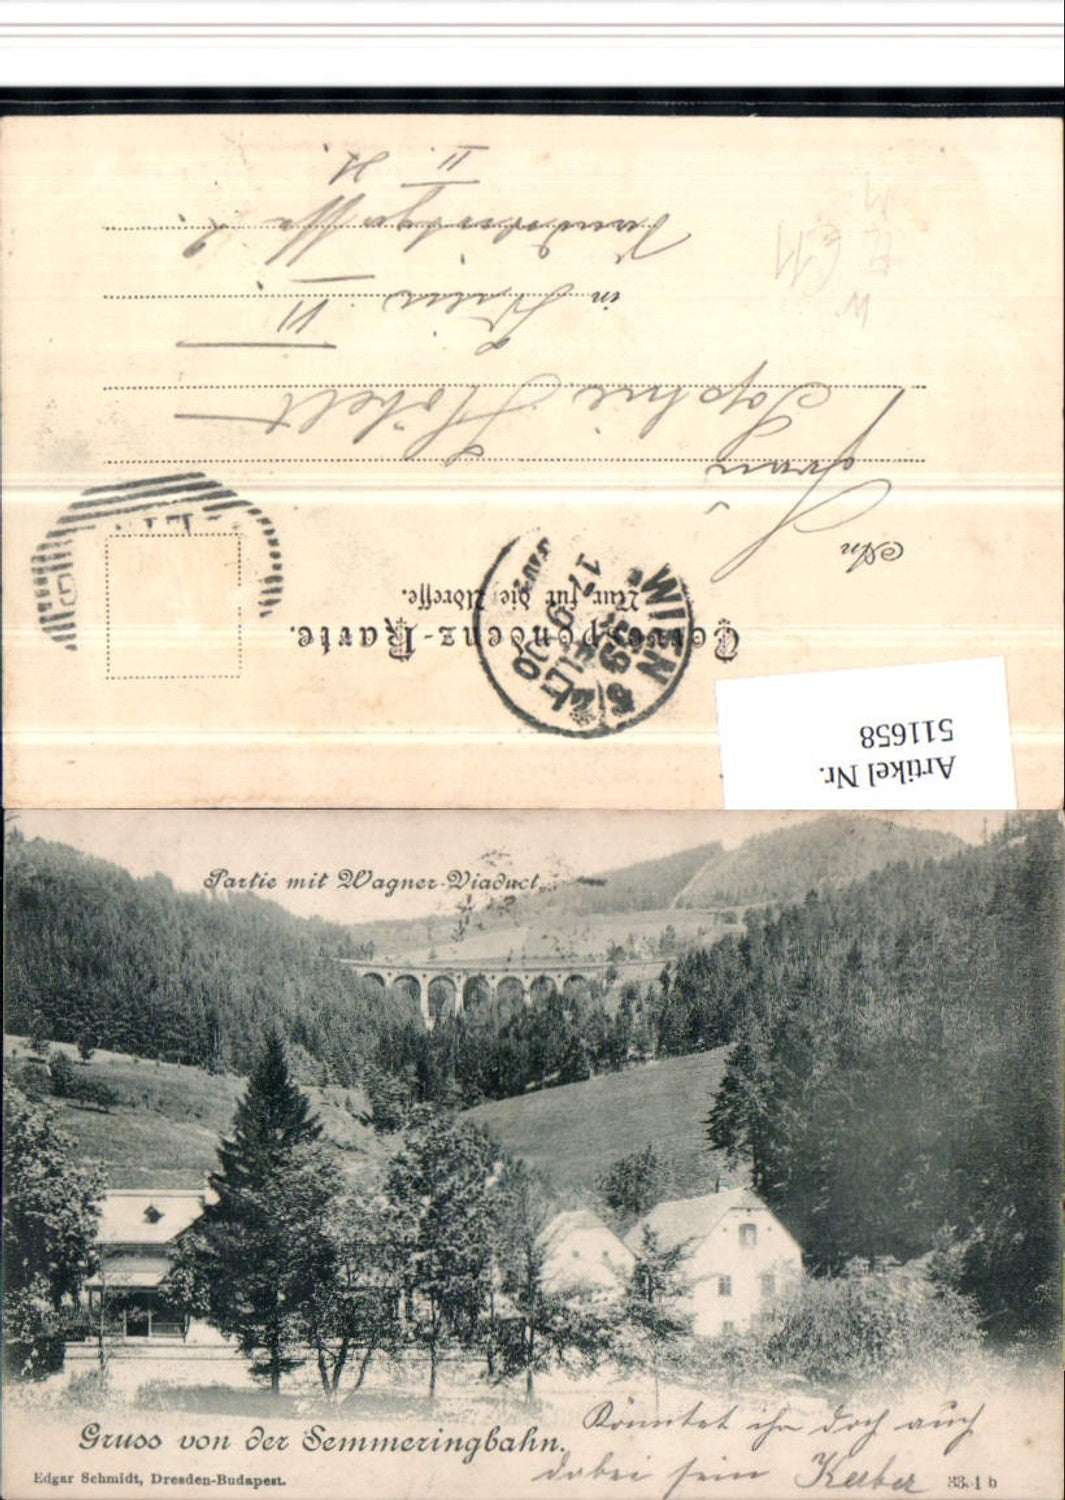 Correspondenz-Karte.
Nur für die Adresse.
An
Frau
Sophie
in Wien VI
II.
WIEN 6/2
17. 9
Artikel Nr.
511658
Partie mit Wagner-Viaduct.
Gruss von der Semmeringbahn.
Könntet ihr doch auch
dabei sein
Edgar Schmidt, Dresden-Budapest.
33.1 b